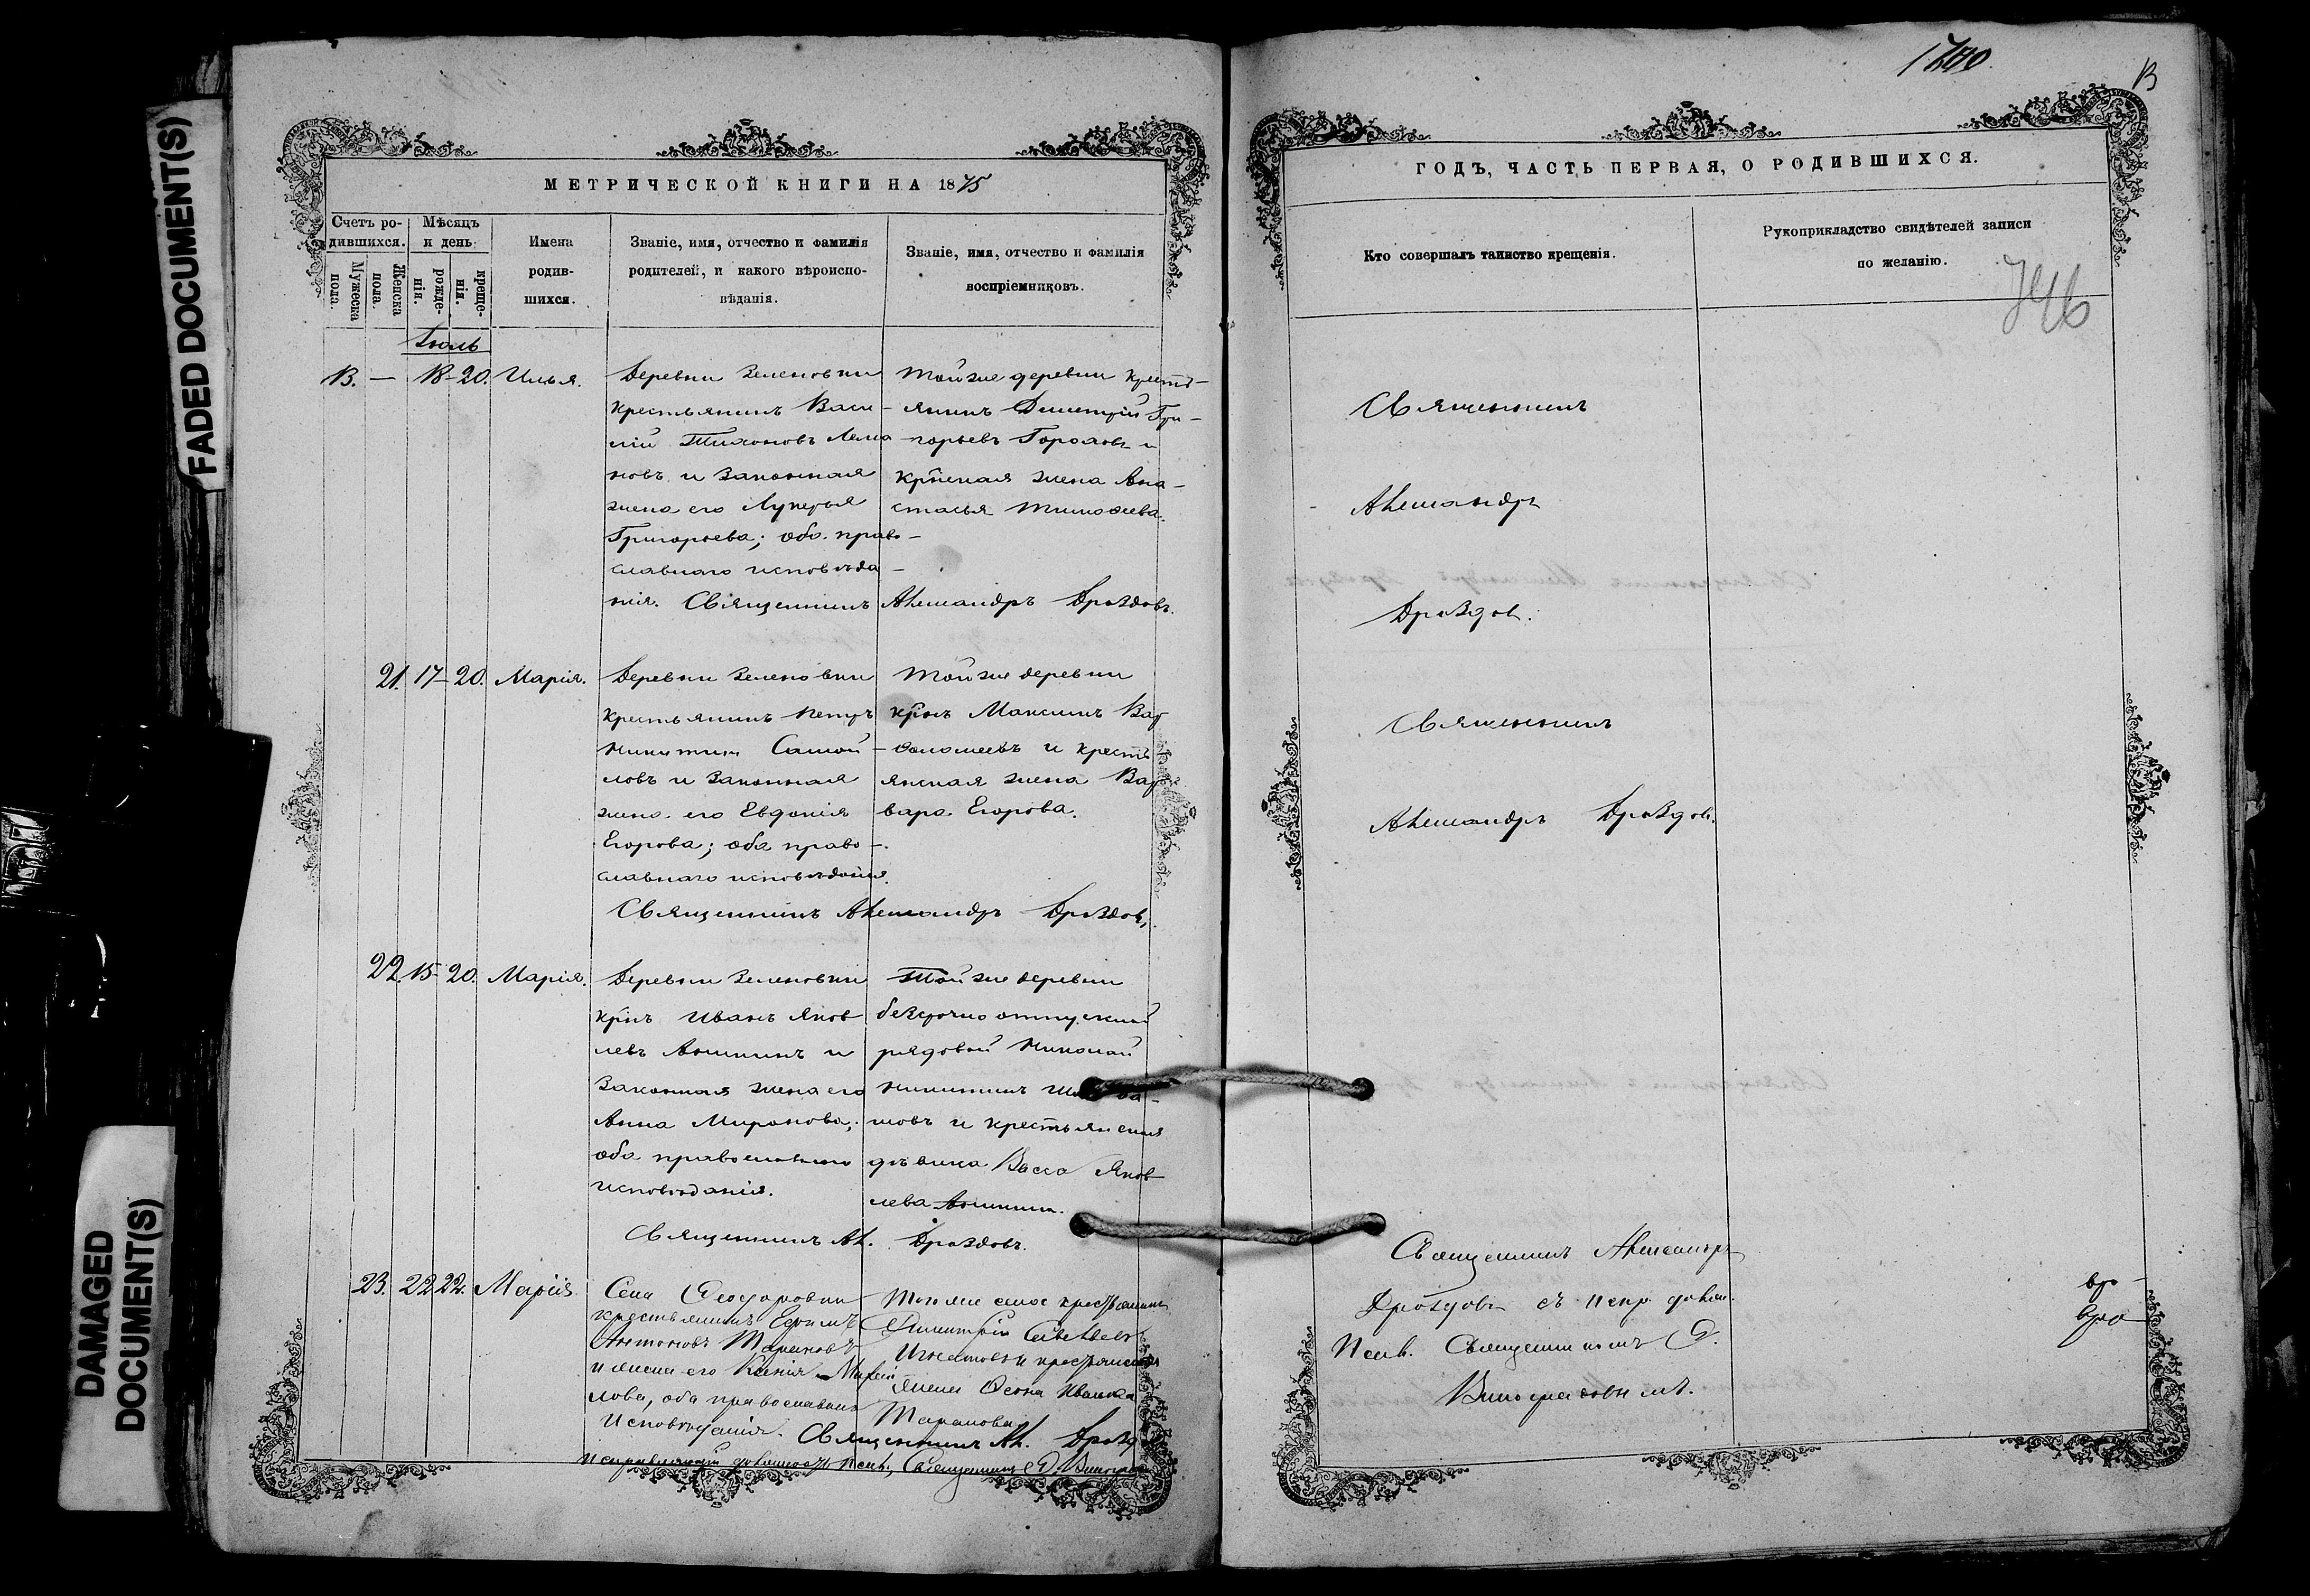 FADED DOCUMENT(S)
DAMAGED
DOCUMENT(S)
МЕТРИЧЕСКОЙ КНИГИ НА 1875
Счетъ ро-
дившихся.
Мужеска
пола.
Женска
пола.
Мѣсяцъ
и день.
рожде-
нія.
креще-
нія.
Имена
родив-
шихся.
Званіе, имя, отчество и фамилія
родителей, и какого вѣроиспо-
вѣданія.
Званіе, имя, отчество и фамилія
воспріемниковъ.
Іюль
13. — 18-20. Илья.
Деревни Зеленовки
крестьянинъ Васи-
лій Тихоновъ
новъ и законная
жена его Лукерья
Григорьева; оба право-
славнаго исповѣда-
нія. Священникъ Александръ Дроздовъ.
Той же деревни кресть-
янинъ Димитрій Гри-
горьевъ Гороховъ и
жена Ана-
стасья Тимофеева.
21. 17-20. Марія.
Деревни Зеленовки
крестьянинъ Петръ
Никитин Самой-
ловъ и законная
жена его Евдокія
Егорова; оба право-
славнаго исповѣданія.
Той же деревни
Максимъ Вар
ѳоломеевъ и кресть
янская жена Вар
вара Егорова.
Священникъ Александръ Дроздовъ.
22. 15-20. Марія.
Деревни Зеленовки
Иванъ Яков
левъ Аношкинъ и
законная жена его
Анна Миронова;
оба православнаго
исповѣданія.
Той же деревни
безсрочно отпускной
рядовой Николай
Никитинъ
и крестьянская
дѣвица Васса Яков
лева
Священникъ Ал. Дроздовъ.
23. 22 22. Марія
Села Ѳеодоровки
крестьянинъ
Антоновъ Тарановъ
и жена его Ксенія
оба православнаго
исповѣданія.
Того же села крестьянинъ
Димитрій
Игнатовъ и крестьянская
жена
Таранова
Священникъ Ал. Дрозд
исправляющій должность Псал. Священникъ Ѳ. Виноградовъ
1700
13
ГОДЪ, ЧАСТЬ ПЕРВАЯ, О РОДИВШИХСЯ.
Кто совершалъ таинство крещенія.
Рукоприкладство свидѣтелей записи
по желанію.
746
Священникъ
Александръ
Дроздовъ.
Священникъ
Александръ Дроздовъ.
Священникъ Александръ
Дроздовъ съ испр. долж.
Псал. Священникомъ Ѳ.
Виноградовымъ.